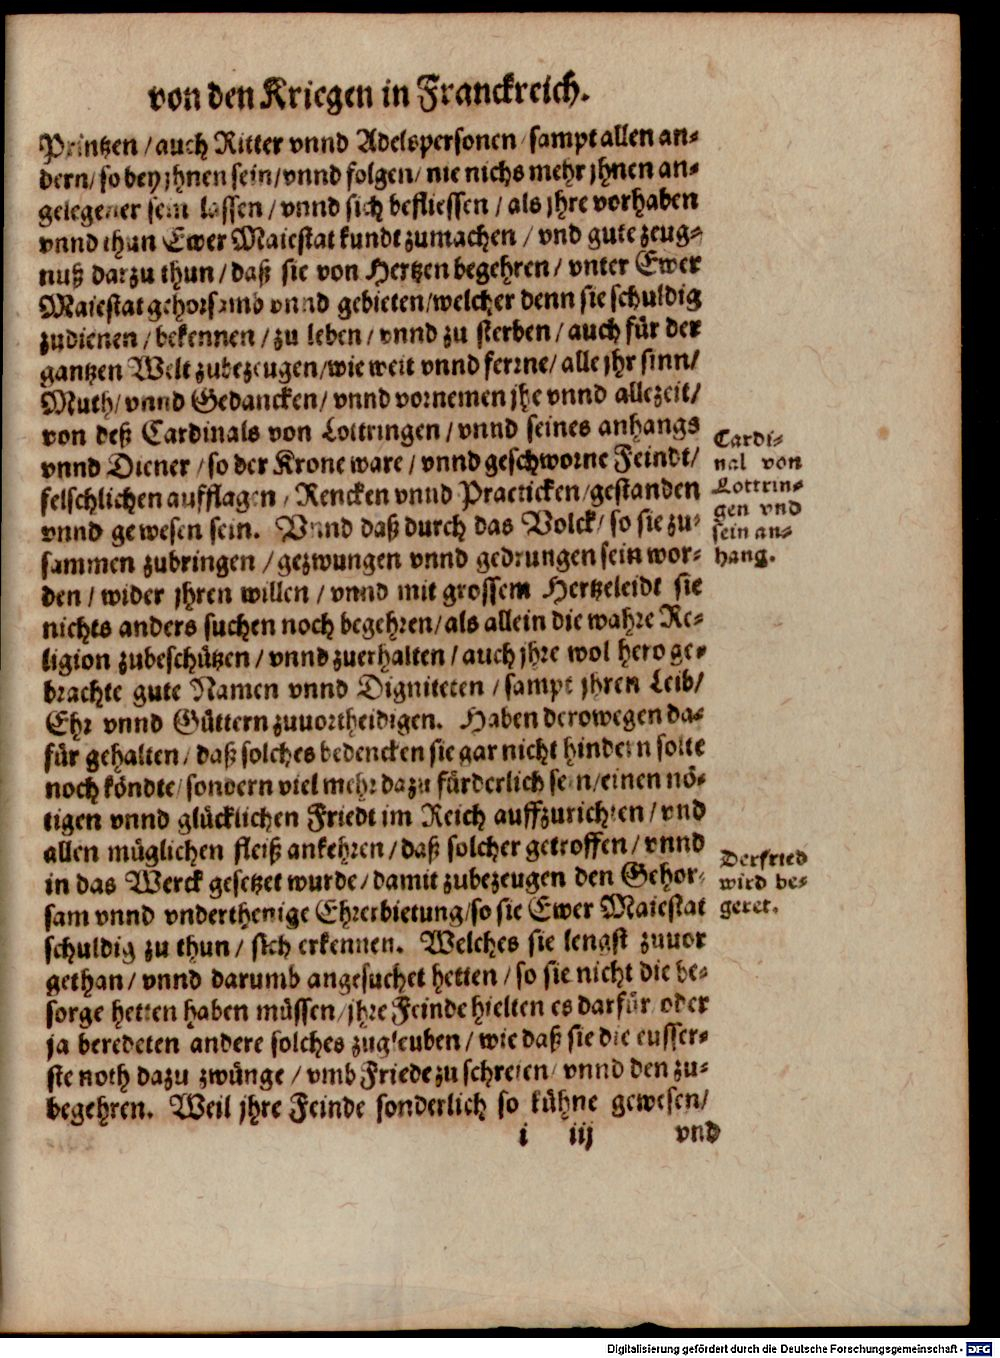 von den Kriegen in Franckreich.
Printzen / auch Ritter vnnd Adelspersonen / sampt allen an-
dern / so bey jhnen sein / vnnd folgen / nie nichs mehr jhnen an-
gelegener sein lassen / vnnd sich befliessen / als jhre vorhaben
vnnd thun Ewer Maiestat kundt zumachen / vnd gute zeug-
nuß darzu thun / daß sie von Hertzen begehren / vnter Ewer
Maiestat gehorsamb vnnd gebieten / welcher denn sie schuldig
zudienen / bekennen / zu leben / vnnd zu sterben / auch für der
gantzen Welt zubezeugen / wie weit vnnd ferrne / alle jhr sinn /
Muth / vnnd Gedancken / vnnd vornemen jhe vnnd allezeit /
von deß Cardinals von Lottringen / vnnd seines anhangs
vnnd Diener / so der Krone ware / vnnd geschworne Feindt /
felschlichen aufflagen / Rencken vnnd Practicken / gestanden
vnnd gewesen sein. Vnnd daß durch das Volck / so sie zu-
sammen zubringen / gezwungen vnnd gedrungen sein wor-
den / wider jhren willen / vnnd mit grossem Hertzeleidt sie
nichts anders suchen noch begehren / als allein die wahre Re-
ligion zubeschützen / vnnd zuerhalten / auch jhre wol hero ge-
brachte gute Namen vnnd Digniteten / sampt jhren Leib /
Ehr vnnd Güttern zuuortheidigen. Haben derowegen da-
für gehalten / daß solches bedencken sie gar nicht hindern solte
noch köndte / sondern viel mehr dazu fürderlich sein / einen nö-
tigen vnnd glücklichen Friedt im Reich auffzurichten / vnd
allen müglichen fleiß ankehren / daß solcher getroffen / vnnd
in das Werck gesetzet wurde / damit zubezeugen den Gehor-
sam vnnd vnderthenige Ehrerbietung / so sie Ewer Maiestat
schuldig zu thun / sich erkennen. Welches sie lengst zuuor
gethan / vnnd darumb angesuchet hetten / so sie nicht die be-
sorge hetten haben müssen / jhre Feinde hielten es darfür / oder
ja beredeten andere solches zugleuben / wie daß sie die eusser-
ste noth dazu zwünge / vmb Friede zu schreien / vnnd den zu-
begehren. Weil jhre Feinde sonderlich so kühne gewesen /
i iij vnd
Cardi-
nal von
Lottrin-
gen vnd
sein an-
hang.
Der fried
wird be-
geret.
Digitalisierung gefördert durch die Deutsche Forschungsgemeinschaft - DFG